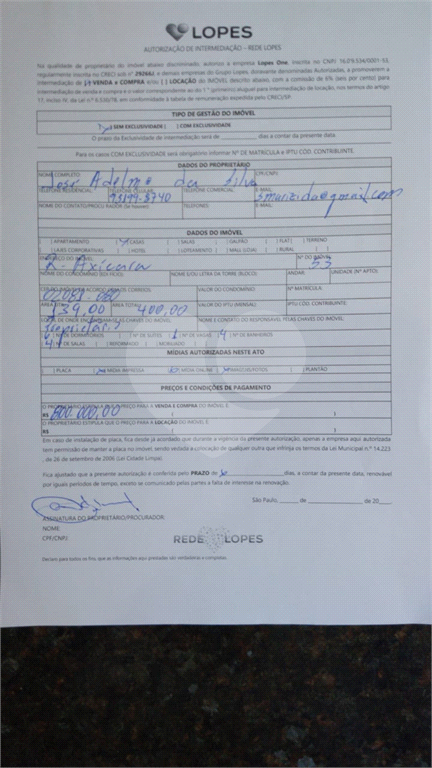 LOPES
AUTORIZAÇÃO DE INTERMEDIAÇÃO - REDE LOPES
Na qualidade de proprietário do imóvel abaixo discriminado, autorizo a empresa Lopes One, inscrita no CNPJ
regularmente inscrita no CRECI sob nº e demais empresas do Grupo Lopes, doravante denominadas Autorizadas, a promoverem a
intermediação de VENDA e COMPRA e/ou [ ] LOCAÇÃO do IMÓVEL descrito abaixo, com a comissão de 6% (seis por cento) para
intermediação de venda e compra e o valor correspondente ao 1º aluguel para intermediação de locação, nos termos do artigo
17, inciso IV, da Lei n.º 6.530/78, em conformidade à tabela de remuneração expedida pelo CRECI/SP.
TIPO DE GESTÃO DO IMÓVEL
SEM EXCLUSIVIDADE [ ] COM EXCLUSIVIDADE
O prazo da Exclusividade de intermediação será de ______ dias a contar da presente data.
Para os casos COM EXCLUSIVIDADE será obrigatório informar Nº DE MATRÍCULA e IPTU CÓD. CONTRIBUINTE.
DADOS DO PROPRIETÁRIO
NOME COMPLETO CPF/CNPJ
José Adelmo da Silva
TELEFONE RESIDENCIAL TELEFONE CELULAR TELEFONE COMERCIAL E-MAIL
NOME DO CONTATO/PROCURADOR TELEFONES E-MAIL
DADOS DO IMÓVEL
[ ] APARTAMENTO CASAS [ ] SALAS [ ] GALPÃO [ ] FLAT [ ] TERRENO
[ ] LAJES CORPORATIVAS [ ] HOTEL [ ] LOTEAMENTO [ ] MALL (LOJA) [ ] RURAL
ENDEREÇO DO IMÓVEL Nº DO IMÓVEL
53
NOME DO CONDOMÍNIO (EDIFÍCIO) NOME E/OU LETRA DA TORRE (BLOCO) ANDAR UNIDADE (Nº APTO)
VALOR DO CONDOMÍNIO Nº MATRÍCULA
ÁREA TOTAL VALOR DO IPTU (MENSAL) IPTU CÓD. CONTRIBUINTE
139,00 400,00
NOME E CONTATO DO RESPONSÁVEL PELAS CHAVES DO IMÓVEL
Nº DE DORMITÓRIOS Nº DE SUÍTES Nº DE VAGAS Nº DE BANHEIROS
Nº DE SALAS [ ] REFORMADO [ ] MOBILIADO
MÍDIAS AUTORIZADAS NESTE ATO
[ ] PLACA MÍDIA IMPRESSA MÍDIA ONLINE [ ] PLANTÃO
PREÇOS E CONDIÇÕES DE PAGAMENTO
O PROPRIETÁRIO ESTIPULA QUE O PREÇO PARA A VENDA E COMPRA DO IMÓVEL É
R$ 800.000,00
O PROPRIETÁRIO ESTIPULA QUE O PREÇO PARA A LOCAÇÃO DO IMÓVEL É:
R$
Em caso de instalação de placa, fica desde já acordado que durante a vigência da presente autorização, apenas a empresa aqui autorizada
tem permissão de manter a placa no imóvel, sendo vedada a colocação de qualquer outra que infrinja os termos da Lei Municipal n.º 14.223
, de 26 de setembro de 2006 (Lei Cidade Limpa).
Fica ajustado que a presente autorização é conferida pelo PRAZO de dias, a contar da presente data, renovável
por iguais períodos de tempo, exceto se comunicado pelas partes a falta de interesse na renovação.
São Paulo, ______ de ______ de 20____
ASSINATURA DO PROPRIETÁRIO/PROCURADOR:
NOME
CPF/CNPJ
REDE LOPES
Declaro para todos os fins, que as informações aqui prestadas são verdadeiras e completas.